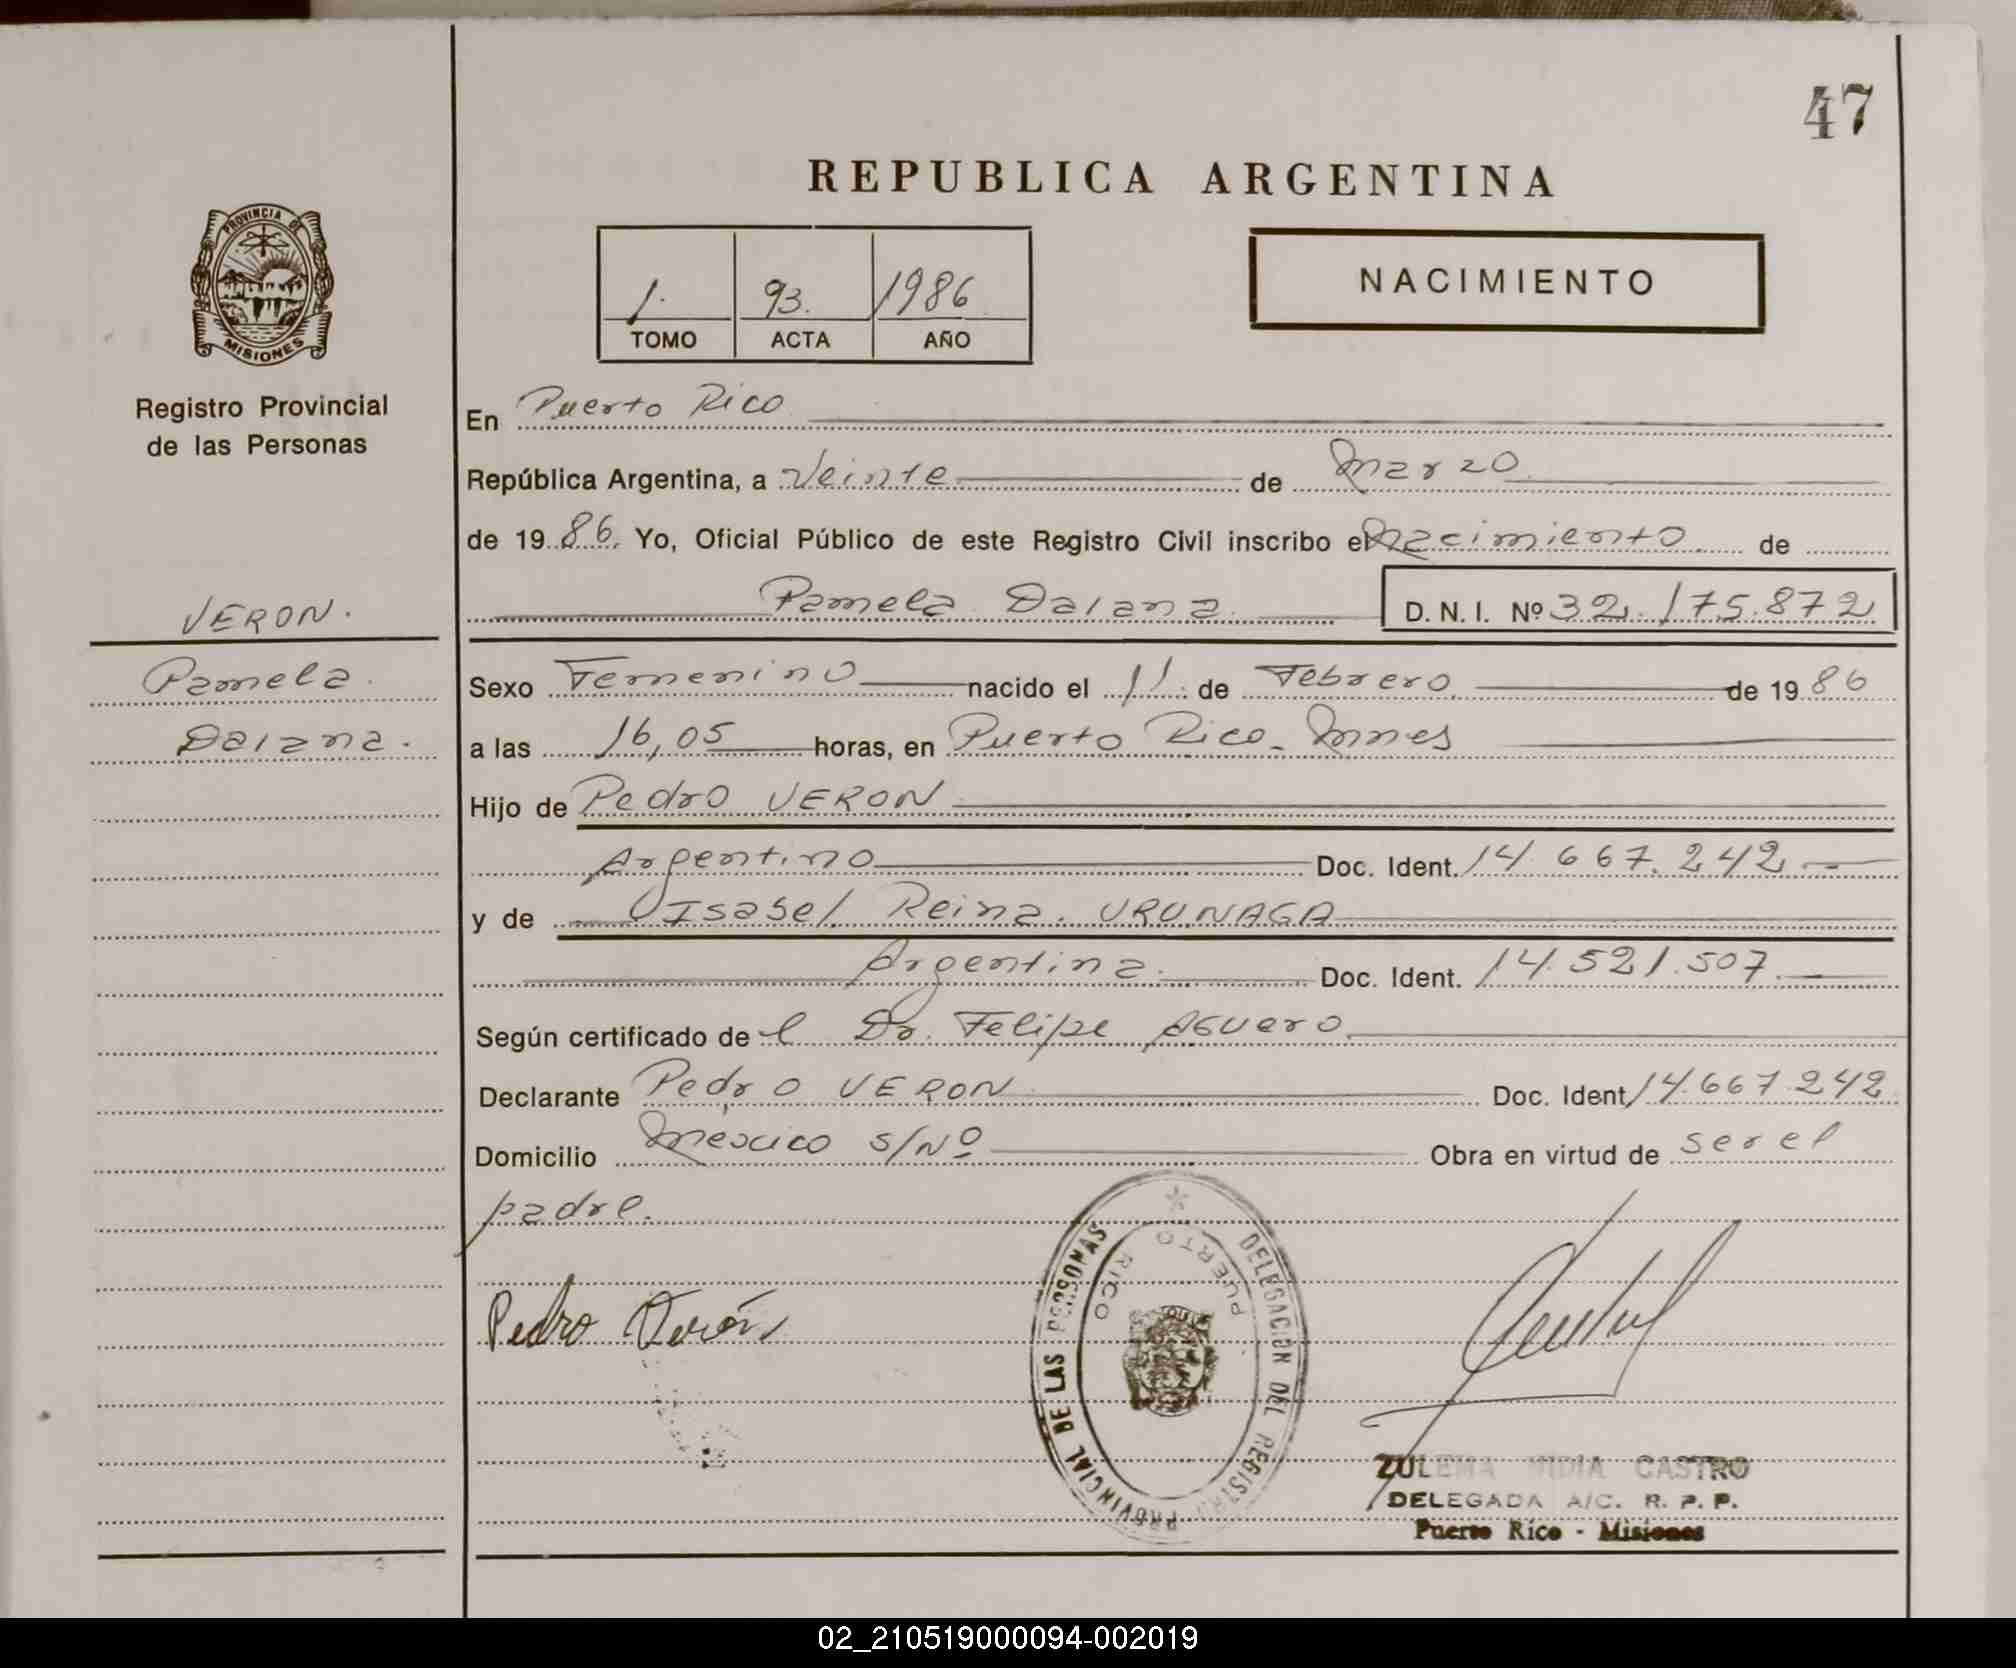 47
REPUBLICA ARGENTINA
PROVINCIA DE
MISIONES
Registro Provincial
de las Personas
1. 93. 1986
TOMO ACTA AÑO
NACIMIENTO
En Puerto Rico
República Argentina, a Veinte de Marzo
de 19 86. Yo, Oficial Público de este Registro Civil inscribo el nacimiento de
Pamela Daiana D. N. I. Nº 32.175.872
VERON.
Pamela
Daiana.
Sexo Femenino nacido el 11 de Febrero de 19 86
a las 16,05 horas, en Puerto Rico - Mnes
Hijo de Pedro VERON
Argentino Doc. Ident. 14.667.242
y de Isabel Reina URUNAGA
Argentina. Doc. Ident. 14.521.507
Según certificado de l Dr. Felipe Aguero
Declarante Pedro VERON Doc. Ident 14.667.242
Domicilio Mexico S/Nº Obra en virtud de ser el
padre.
Pedro Verón
DELEGACION DEL REGISTRO PROVINCIAL DE LAS PERSONAS
PUERTO RICO
ZULEMA NIDIA CASTRO
DELEGADA A/C. R. P. P.
Puerto Rico - Misiones
02_210519000094-002019